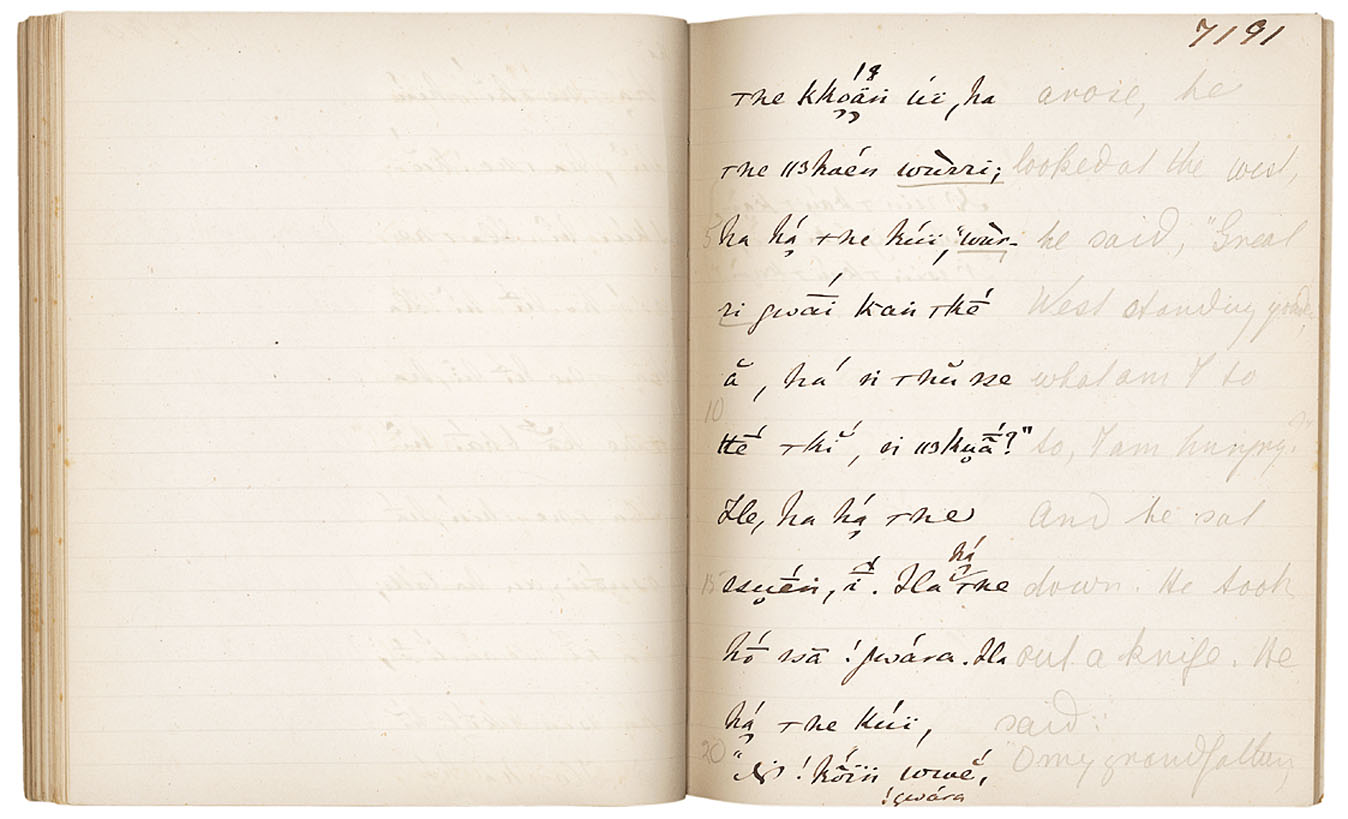 7191
18
┬ne kkoäṅ úï, ha arose, he
┬ne ǁɜkaéṅ wùrri; looked at the west,
5 ha há̤ ┬ne kúï, "wùr- he said, "Great
ri gwāí kaṅ ┬ké̄ West standing yonder,
ă, há ṅ ┬nŭ sse what am I to
10
té̄ ┬kĭ, ṅ ǁɜkṷā́?" to, I am hungry?"
He, ha há̤ ┬ne And he sat
há̤
15 ssṷḗṅ, ī́. Ha ┬ne down. He took
hṓ ssā !gwára. Ha out a knife. He
há̤ ┬ne kúï, said:
20 !kṓïṅ wwĕ́, "O my grandfather,
!gwára